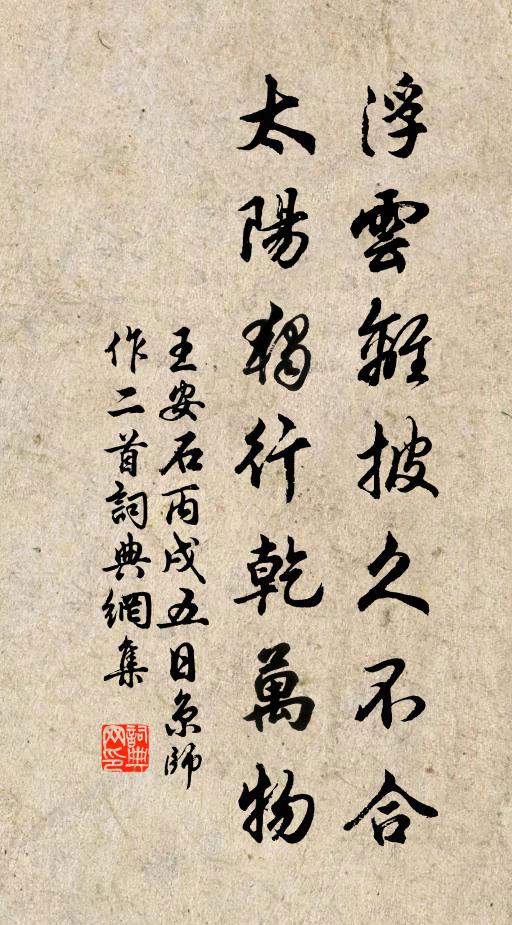 浮雲離披久不合
太陽獨行乾萬物
王安石丙戌五日京師
作二首詞典網集
詞典
網印